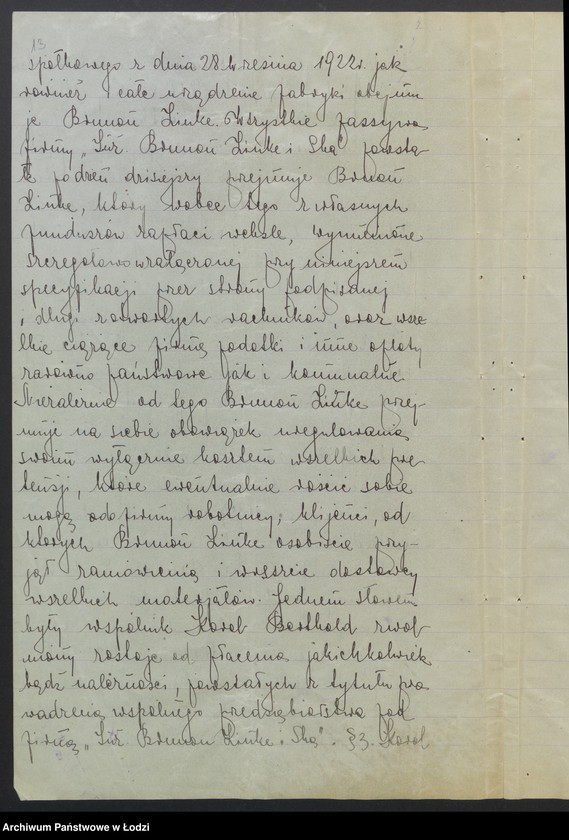 13
spółkowego z dnia 28 września 1922r. jak
również i całe urządzenie fabryki obejmu
je Brunon Linke. Wszystkie passywa
firmy „Inż. Brunon Linke i Ska” powsta
łe podzień dzisiejszy przejmuje Brunon
Linke, który wobec tego z własnych
funduszów zapłaci weksle, wymienione
szczegółowo w załączonej przy niniejszem
specyfikacji przez strony podpisanej
i długi z otwartych rachunków, oraz wsze
lkie ciążące firmę podatki i inne opłaty,
zarówno państwowe jak i komunalne.
Niezależnie od tego Brunon Linke przej-
muje na siebie obowiązek uregulowania
swoim wyłącznie kosztem wszelkich pre-
tensji, które ewentualnie rościć sobie
mogą do firmy robotnicy, klijenci, od
których Brunon Linke osobiście przy-
jął zamówienia i wreszcie dostawcy
wszelkich materjałów. Jednem słowem
były wspólnik Karol Berthold zwol
niony zostaje od płacenia jakichkolwiek
bądź należności, powstałych z tytułu pro
wadzenia wspólnego przedsiębiorstwa pod
firmą „Inż. Brunon Linke i Ska”. §3. Karol
Archiwum Państwowe w Łodzi